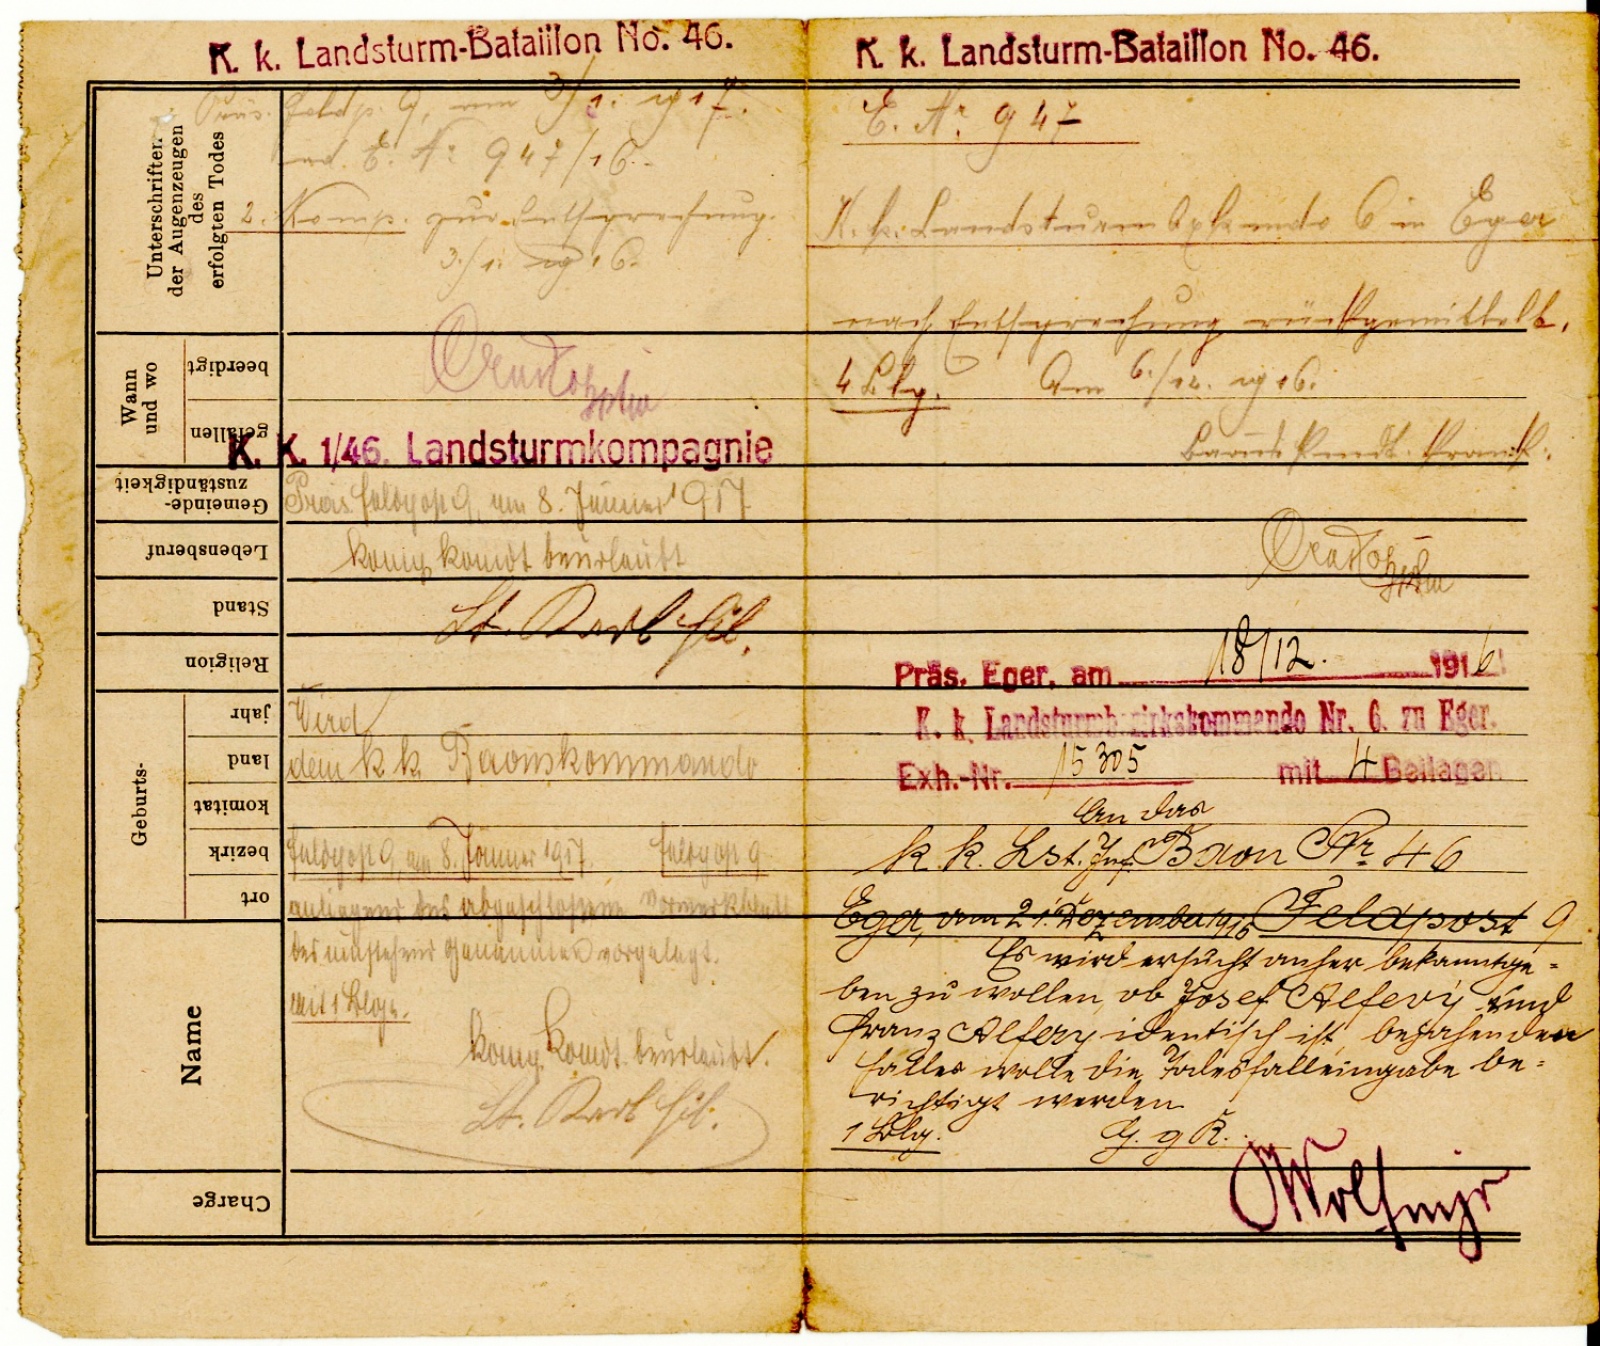 K. k. Landsturm-Bataillon No. 46.
Präs. Feldp. 9, am 3/1. 1917.
E. Nr 947/16.
2. Komp. zur Entsprechung.
3./1. 1916.
K. K. 1/46. Landsturmkompagnie
Präs. Feldpost 9, am 8. Jänner 1917
Komp. Komdt beurlaubt
Lt. Karl
Wird
dem k. k. Baonskommando
Feldpost 9, am 8. Jänner 1917. Feldpost 9
anliegend das abgeschlossene Vormerkblatt
des umstehend Genannten vorgelegt.
mit 1 Blge.
Komp. Komdt. beurlaubt.
Lt. Karl
Unterschriften
der Augenzeugen
des
erfolgten Todes
Wann
und wo
beerdigt
gefallen
Gemeinde-
zuständigkeit
Lebensberuf
Stand
Religion
Geburts-
jahr
land
komitat
bezirk
ort
Name
Charge
K. k. Landsturm-Bataillon No. 46.
E. Nr 947
K. k. Landsturmbzkmdo 6 in Eger
nach Entsprechung rückgemittelt.
4 Blg. Am 6./12. 1916.
Präs. Eger, am 18/12. 1916
K. k. Landsturmbezirkskommando Nr. 6. zu Eger.
Exh.-Nr. 15305 mit 4 Beilagen
An das
k. k. Lst. Inf. Baon Nr 46
Eger, am 21. Dezember 1916 Feldpost 9
Es wird ersucht anher bekanntge-
ben zu wollen, ob Josef Alfery und
Franz Alfery identisch ist, bejahenden
Falles wolle die Todesfalleingabe be-
richtigt werden
1 Blg.